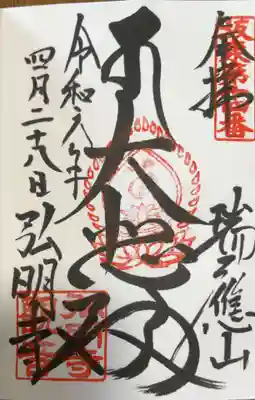 坂東第十四番
奉拝
瑞應山
大悲殿
令和年
四月二十八日
弘明寺